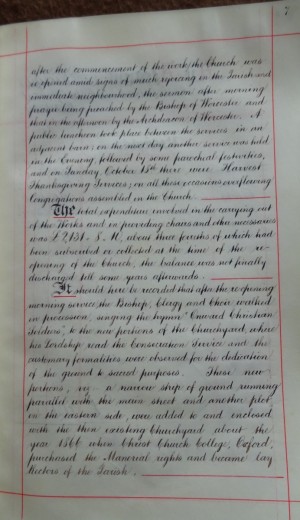 7
after the commencement of the work, the Church was
re-opened amid signs of much rejoicing in the Parish and
immediate neighbourhood, the sermon after morning
prayer being preached by the Bishop of Worcester and
that in the afternoon by the Archdeacon of Worcester. A
public luncheon took place between the services in an
adjacent barn; on the next day another service was held
in the Evening, followed by some parochial festivities,
and on Sunday October 15th there were Harvest
Thanksgiving Services; on all these occasions overflowing
Congregations assembled in the Church.
The total expenditure involved in the carrying out
of the Works and in providing chairs and other necessaries
was about three fourths of which had
been subscribed or collected at the time of the re-
opening of the Church, the balance was not finally
discharged till some years afterwards.
It should here be recorded that after the re-opening
morning service, the Bishop, Clergy and Choir walked
in procession, singing the hymn "Onward Christian
Soldiers", to the new portions of the Churchyard, where
his Lordship read the Consecration Service and the
customary formalities were observed for the dedication
of the ground to sacred purposes. These new
portions, viz. a narrow strip of ground running
parallel with the main street and another plot
on the eastern side, were added to and enclosed
with the then existing Churchyard about the
year 1866 when Christ Church College, Oxford,
purchased the Manorial rights and became Lay
Rectors of the Parish.